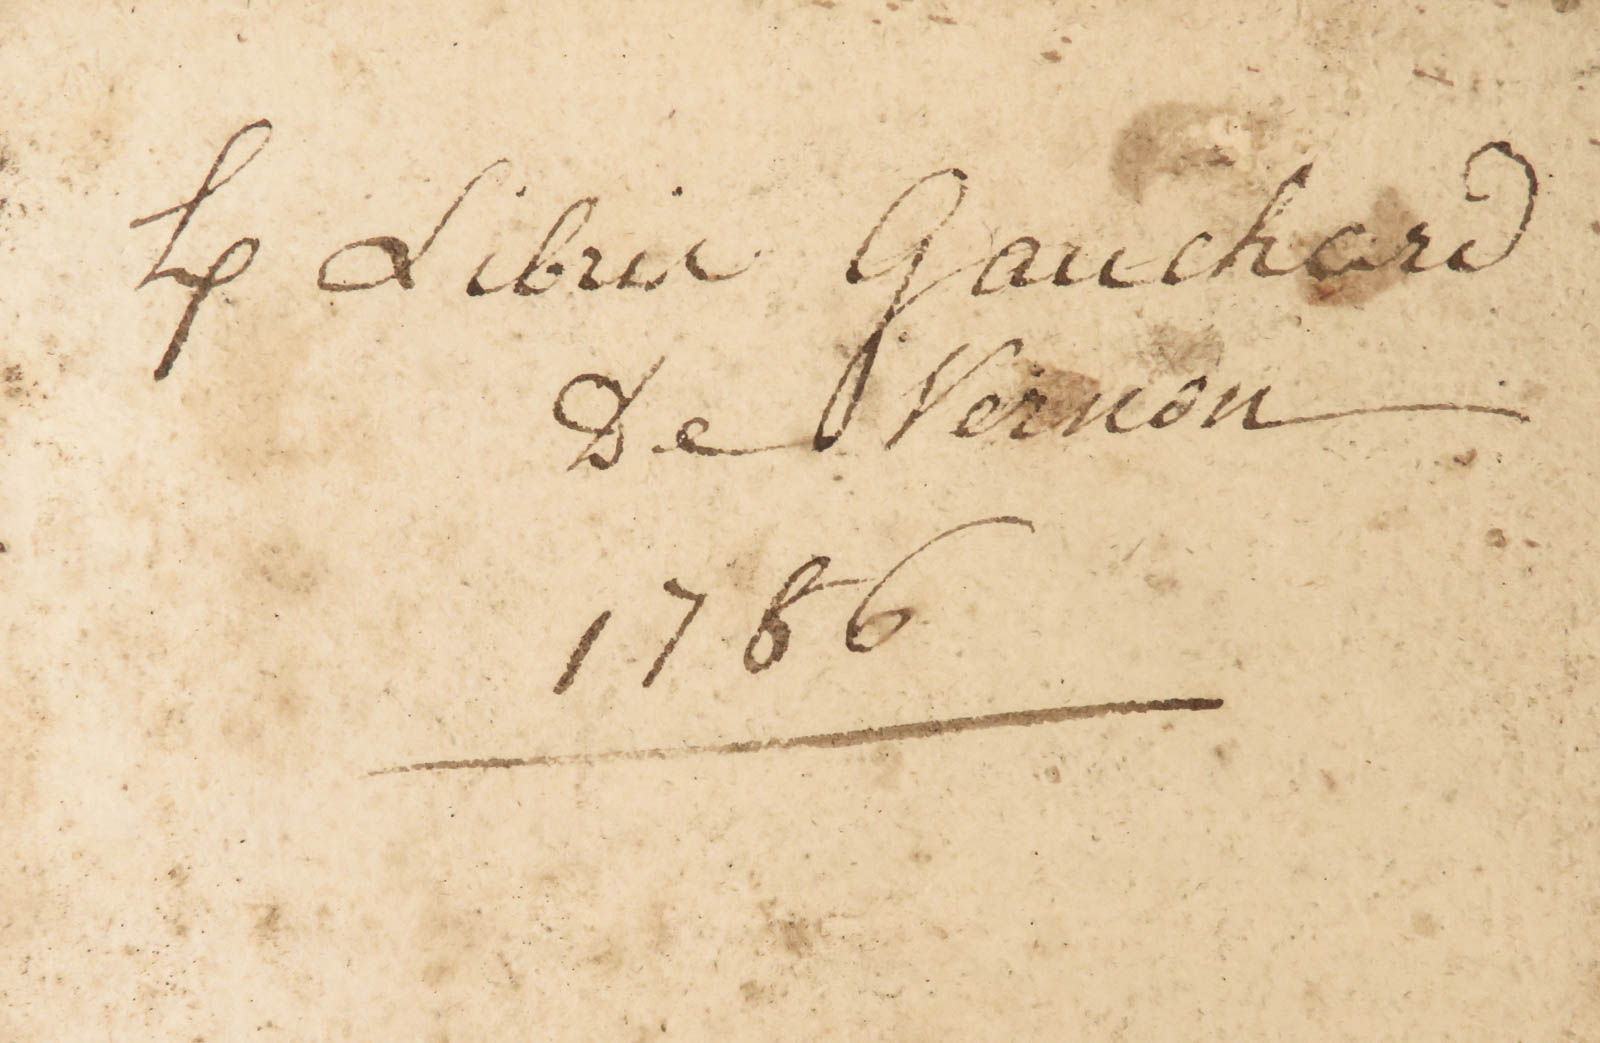 Ex Libris Gauchard
De Vernon
1786